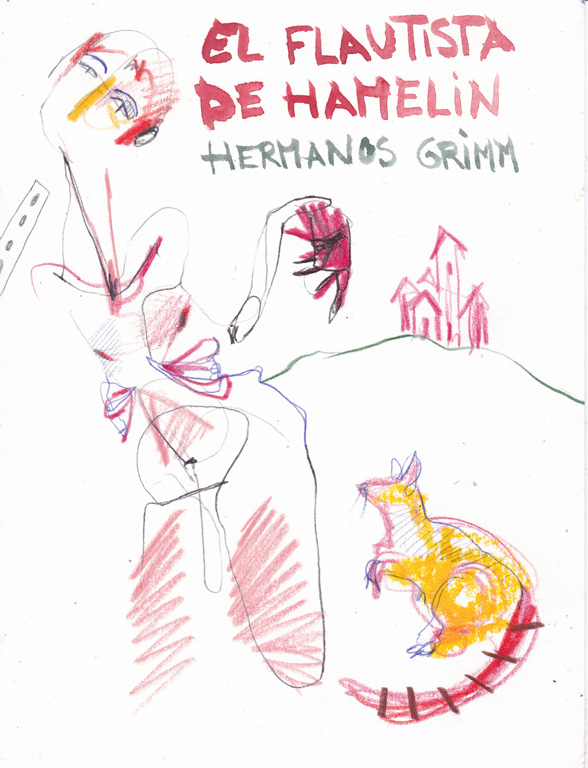 EL FLAUTISTA
DE HAMELiN
HERMANOS GRiMM